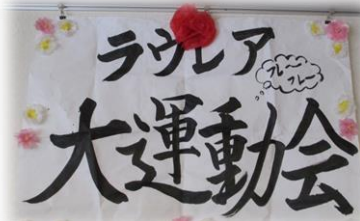 ラウレア
フレー
フレー
大運動会